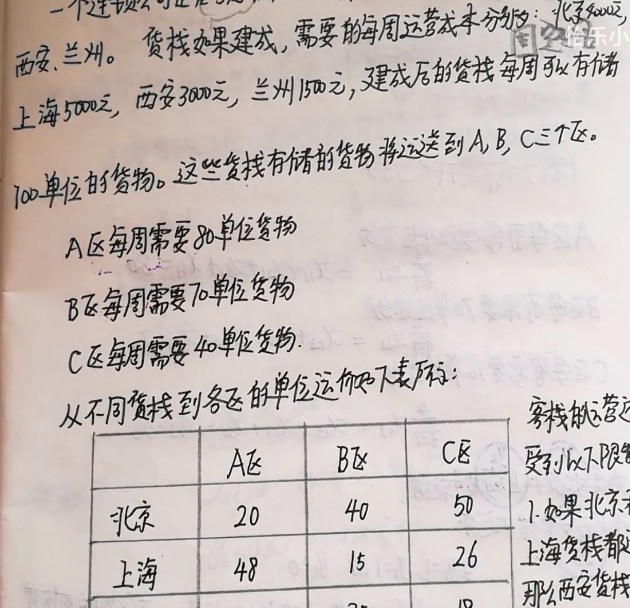 一个连锁公司
西安、兰州。货栈如果建成,需要的每周运营成本分别为:北京4000元,
上海5000元,西安3000元,兰州1500元,建成后的货栈每周可以存储
100单位的货物。这些货栈存储的货物将运送到A,B,C三个区。
A区每周需要80单位货物
B区每周需要70单位货物
C区每周需要40单位货物.
从不同货栈到各区的单位运价如下表所示:
A区 B区 C区
北京 20 40 50
上海 48 15 26
货栈的运营
受到以下限
1.如果北京
上海货栈都
那么西安货栈